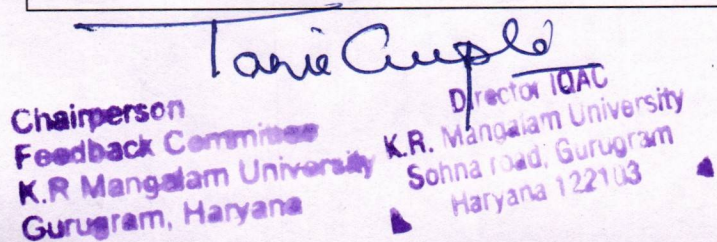 Tania Gupta
Chairperson
Feedback Committee
K.R Mangalam University
Gurugram, Haryana
Director IQAC
K.R. Mangalam University
Sohna road, Gurugram
Haryana 122103